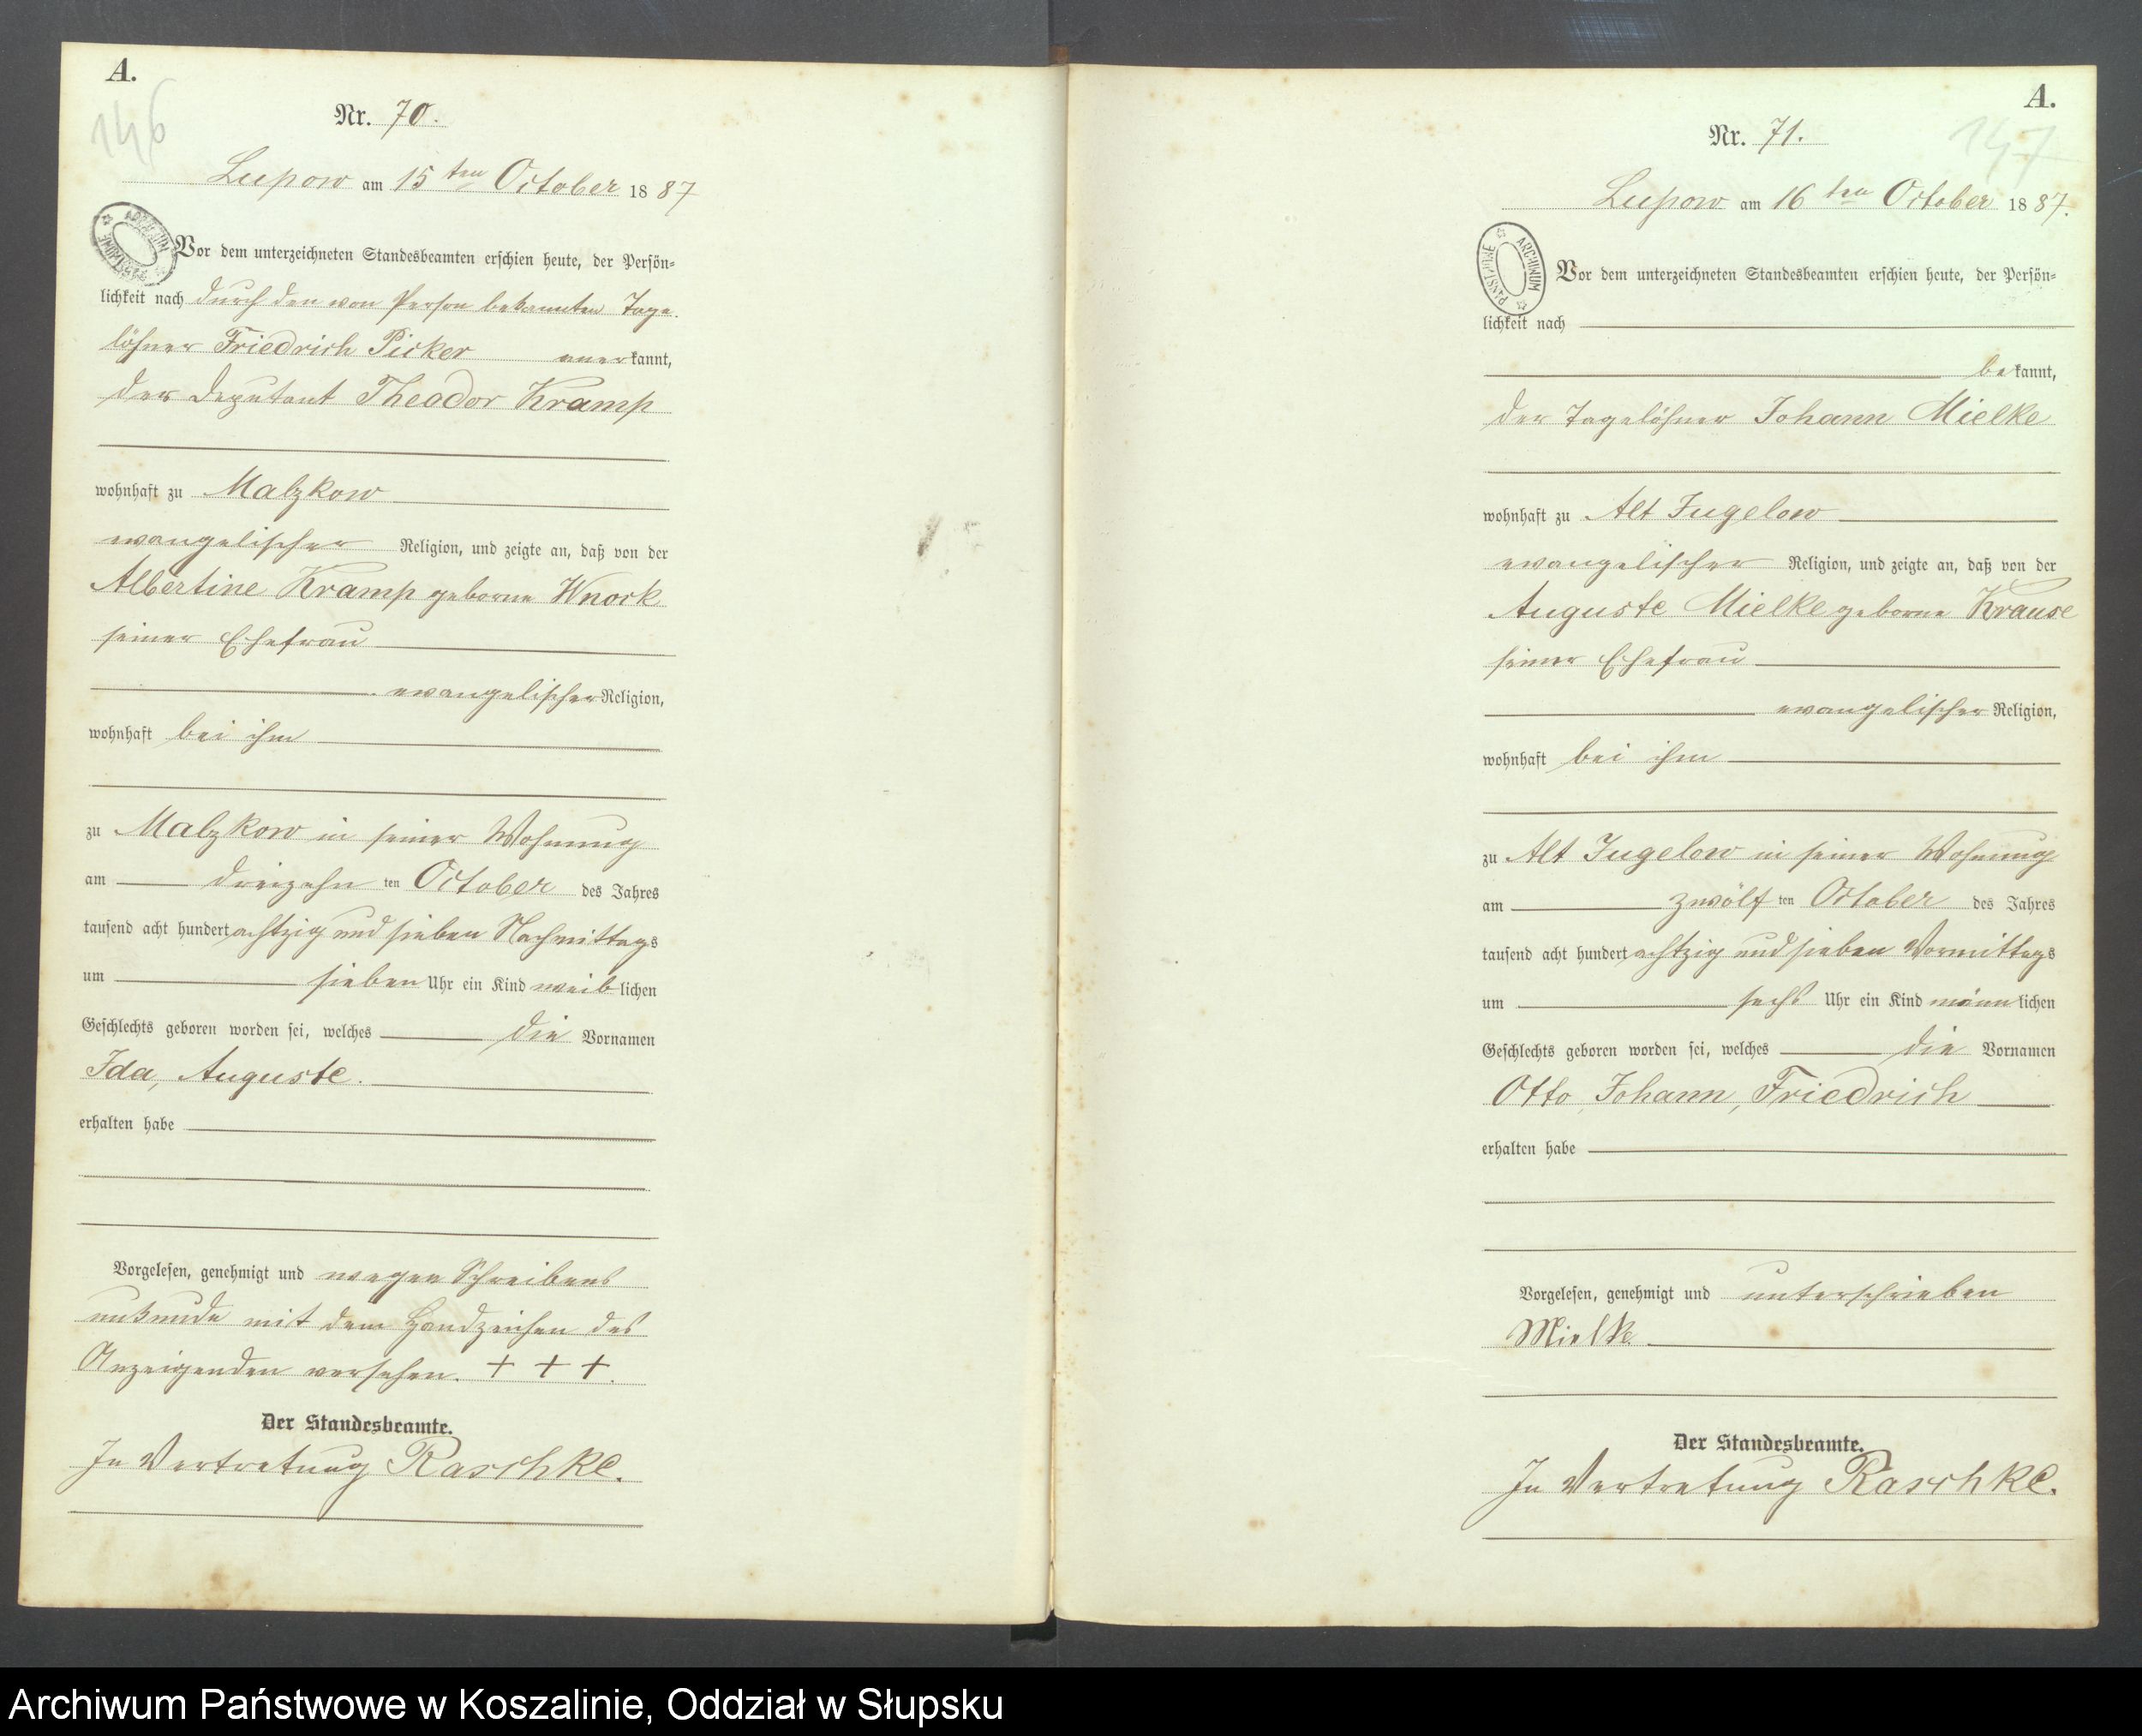 A.
146
Nr. 70.
Lupow am 15ten October 1887
ARCHIWUM PAŃSTWOWE
Vor dem unterzeichneten Standesbeamten erschien heute, der Persön-
lichkeit nach durch den von Person bekannten Tage-
löhner Friedrich Picker anerkannt,
der Deputant Theodor Kramp
wohnhaft zu Malzkow
evangelischer Religion, und zeigte an, daß von der
Albertine Kramp geborne Wnork
seiner Ehefrau
evangelischer Religion,
wohnhaft bei ihm
zu Malzkow in seiner Wohnung
am dreizehn ten October des Jahres
tausend acht hundert achtzig und sieben Nachmittags
um sieben Uhr ein Kind weiblichen
Geschlechts geboren worden sei, welches die Vornamen
Ida, Auguste.
erhalten habe
Vorgelesen, genehmigt und wegen Schreibens
unkunde mit dem Handzeichen des
Anzeigenden versehen. + + +.
Der Standesbeamte.
In Vertretung Raschke.
A.
147
Nr. 71.
Lupow am 16ten October 1887.
ARCHIWUM PAŃSTWOWE
Vor dem unterzeichneten Standesbeamten erschien heute, der Persön-
lichkeit nach
bekannt,
der Tagelöhner Johann Mielke
wohnhaft zu Alt Jugelow
evangelischer Religion, und zeigte an, daß von der
Auguste Mielke geborne Krause
seiner Ehefrau
evangelischer Religion,
wohnhaft bei ihm
zu Alt Jugelow in seiner Wohnung
am zwölf ten October des Jahres
tausend acht hundert achtzig und sieben Vormittags
um sechs Uhr ein Kind männlichen
Geschlechts geboren worden sei, welches die Vornamen
Otto, Johann, Friedrich
erhalten habe
Vorgelesen, genehmigt und unterschrieben
Mielke
Der Standesbeamte.
In Vertretung Raschke.
Archiwum Państwowe w Koszalinie, Oddział w Słupsku